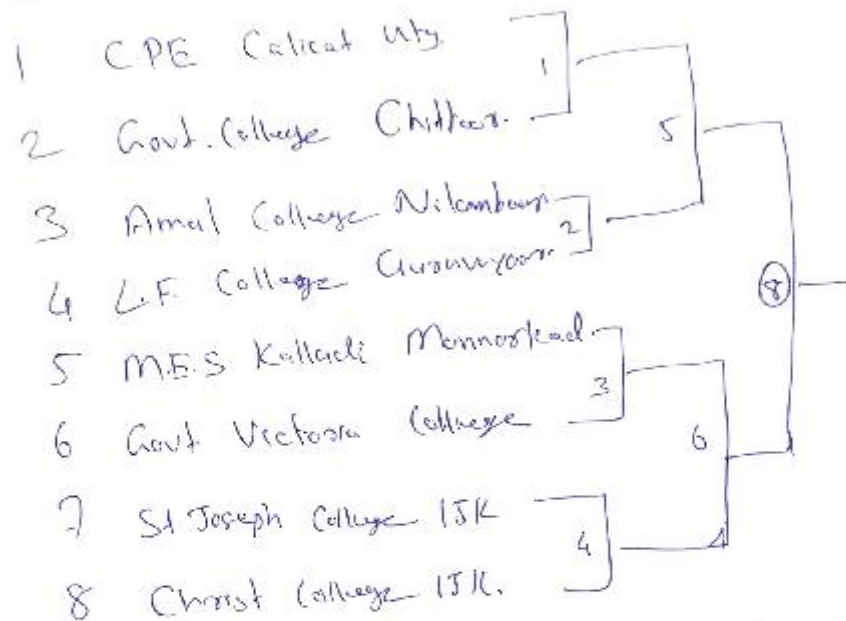 1 CPE Calicut Uty. 1
2 Govt. College Chittoor. 5
3 Amal College Nilambur 2
4 L.F. College Guruvayoor. 8
5 M.E.S Kalladi Mannarkad. 3
6 Govt Victoria College 6
7 St Joseph College IJK 4
8 Christ College IJK.